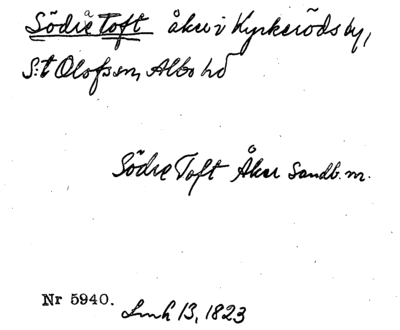 Södre Toft åker i Kyrkeröds by,
S:t Olofs sn, Albo hd
Södre Toft Åker Sandb. m.
Nr 5940. Lmh B, 1823